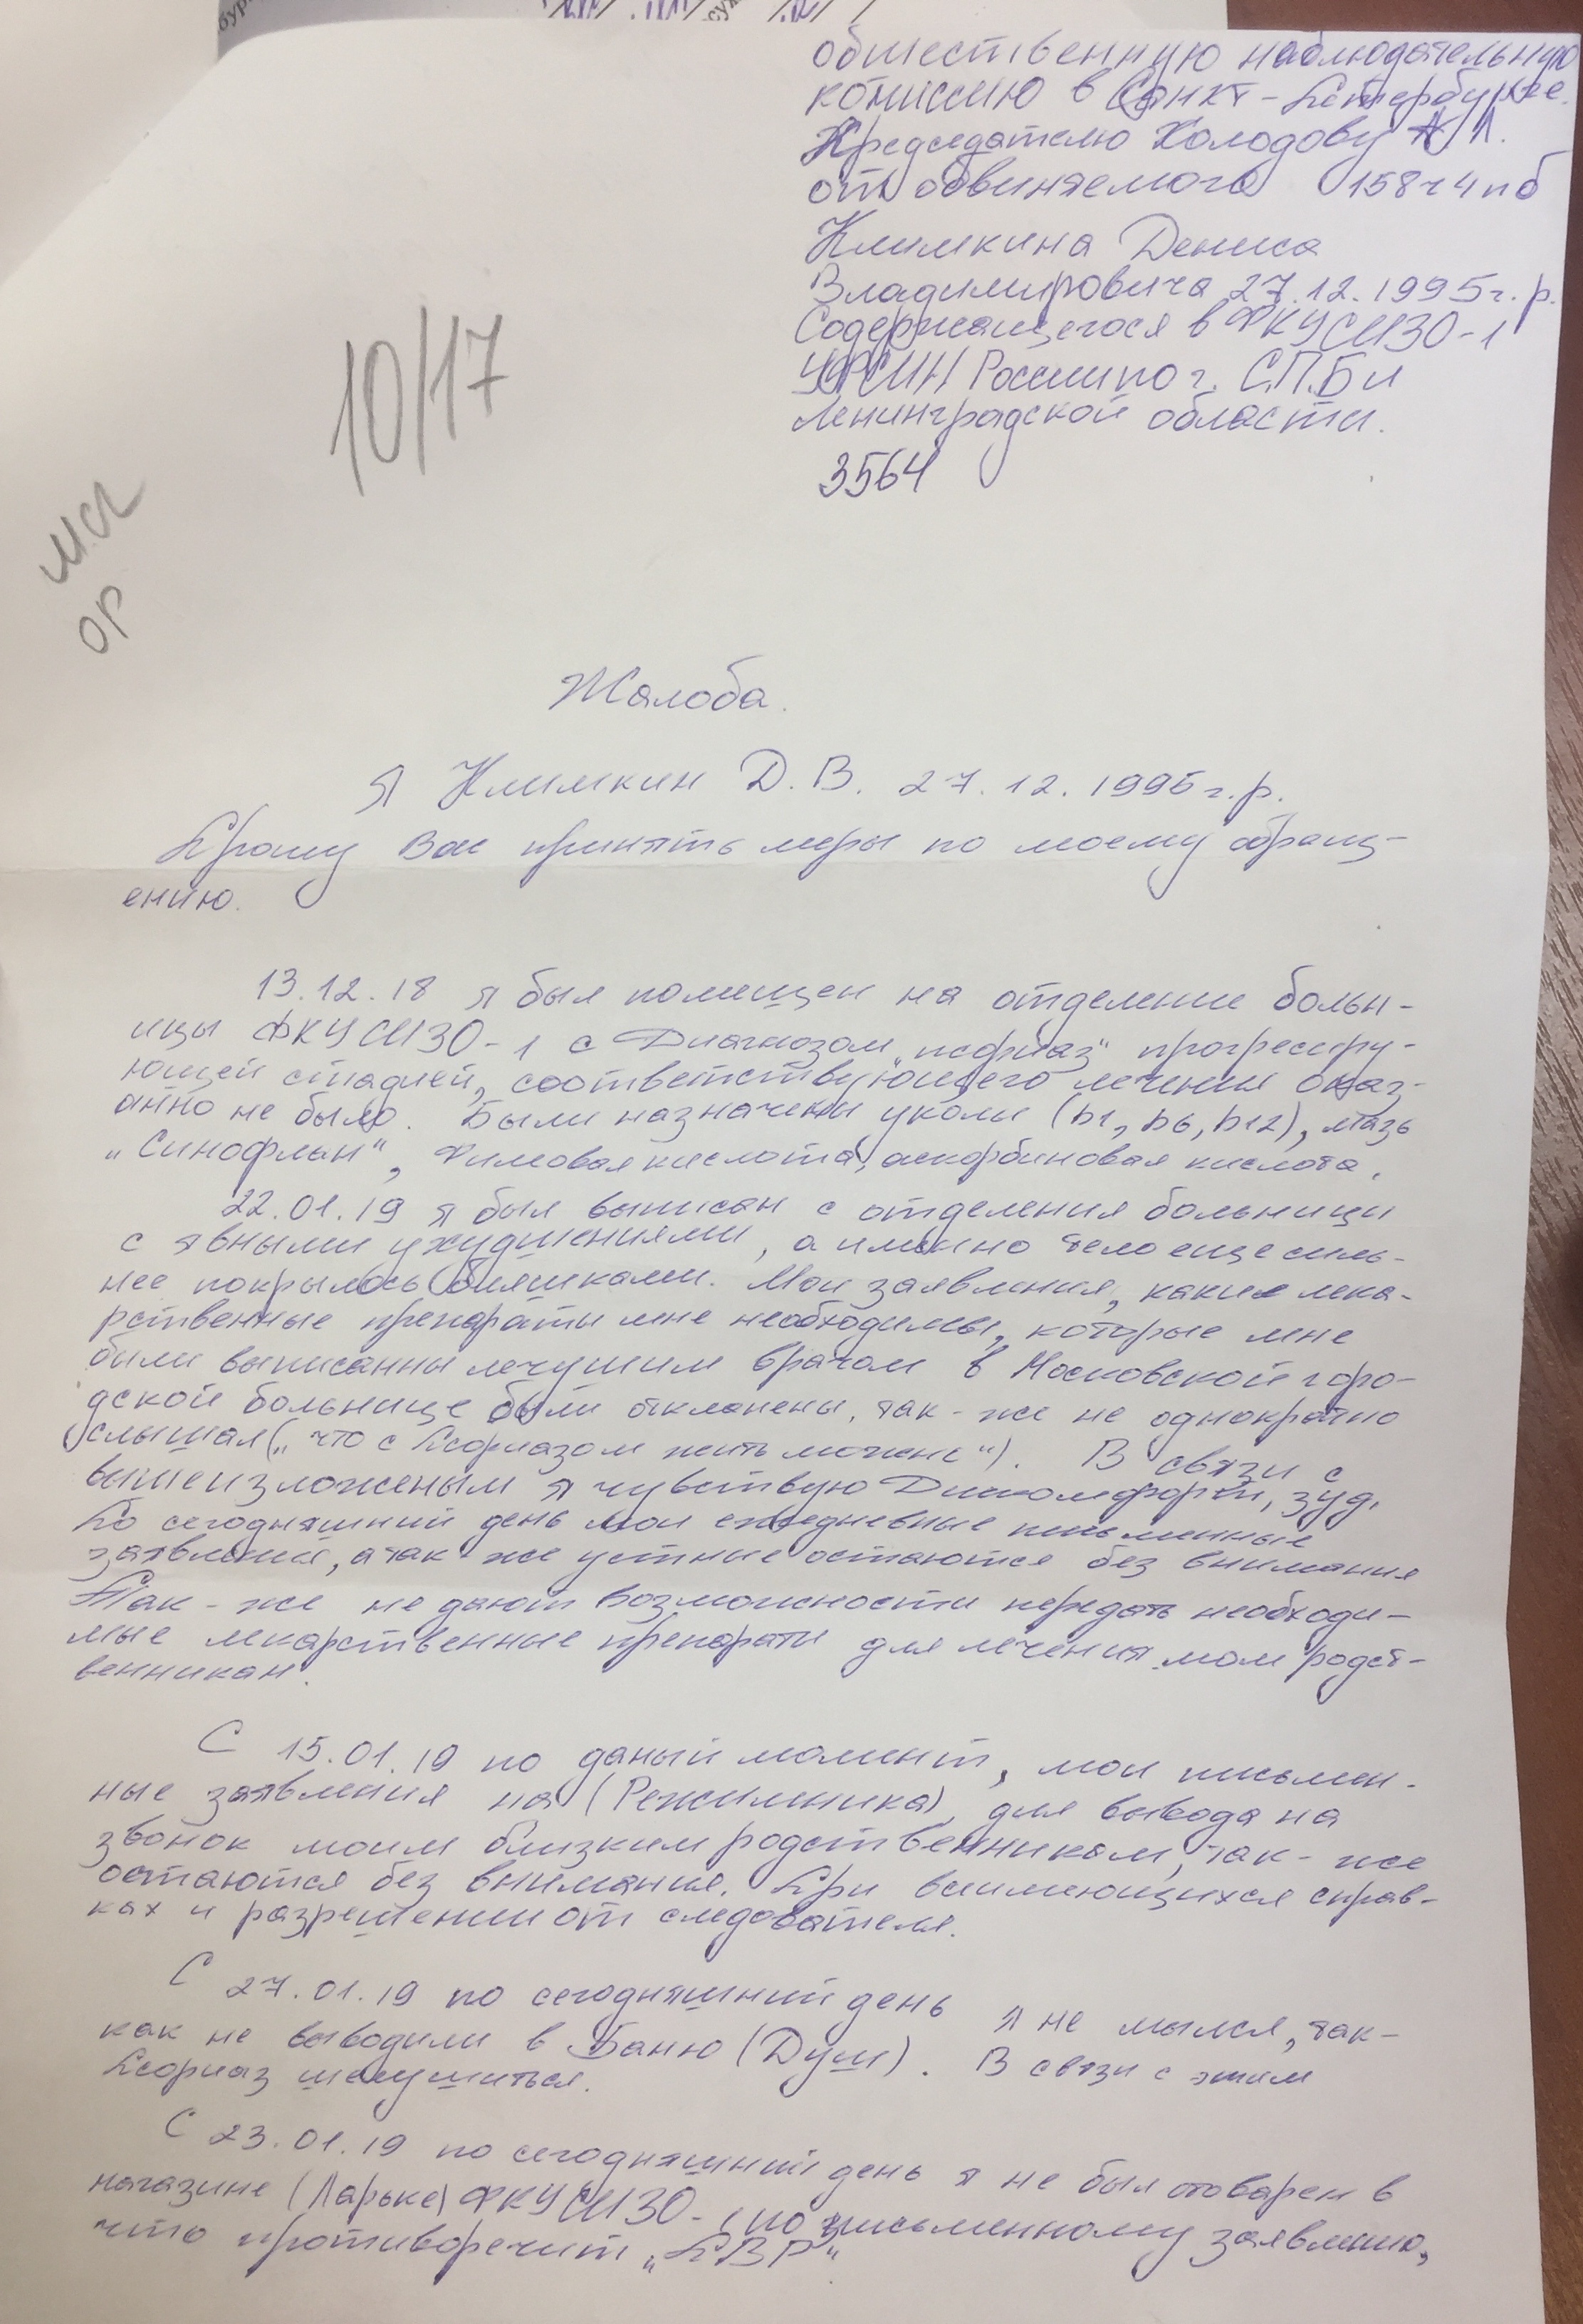 общественную наблюдательную
комиссию в Санкт-Петербурге.
Председателю Холодову А Л.
от обвиняемого 158ч4пб
Климкина Дениса
Владимировича 27.12.1995г.р.
Содержащегося в ФКУ СИЗО-1
УФСИН России по г. С.П.Б и
Ленинградской области.
3564
10/17
ор
Жалоба.
Я Климкин Д.В. 27.12.1995г.р.
Прошу Вас принять меры по моему обращ-
ению.
13.12.18 я был помещен на отделение больн-
ицы ФКУ СИЗО-1 с Диагнозом „псориаз" прогрессиру-
ющей стадией, соответствующего лечения оказ-
анно не было. Были назначены уколы (b1, b6, b12), мазь
„Синофлан", Фимовая кислота, аскорбиновая кислота.
22.01.19 я был выписан с отделения больници
с явными ухудшениями, а именно тело еще силь-
нее покрылось бляшками. Мои заявления, какие лека-
рственные препараты мне необходимы, которые мне
были выписанны лечушим врачом в Московской горо-
дской больнице были отклонены, так-же не однократно
слышал („что с Псориазом жить можно"). В связи с
вышеизложеным я чувствую Дискомфорт, зуд.
По сегодняшний день мои ежедневные письменные
заявления, а так же устные остаются без внимания
Так-же не дают возможности передать необходи-
мые лекарственные препараты для лечения моим родст-
венникам.
С 15.01.19 по даный момент, мои письмен-
ные заявления на (Режимника), для вывода на
звонок моим близким родственникам, так-же
остаются без внимания. При всимеющихся справ-
ках и разрешении от следователя.
С 27.01.19 по сегодняшний день я не мылся, так-
как не выводили в Баню (Душ). В связи с этим
Псориаз шелушиться.
С 23.01.19 по сегодняшний день я не был отоварен в
магазине (Ларьке) ФКУ СИЗО-1 по письменному заявлению,
что противоречит „ПВР"